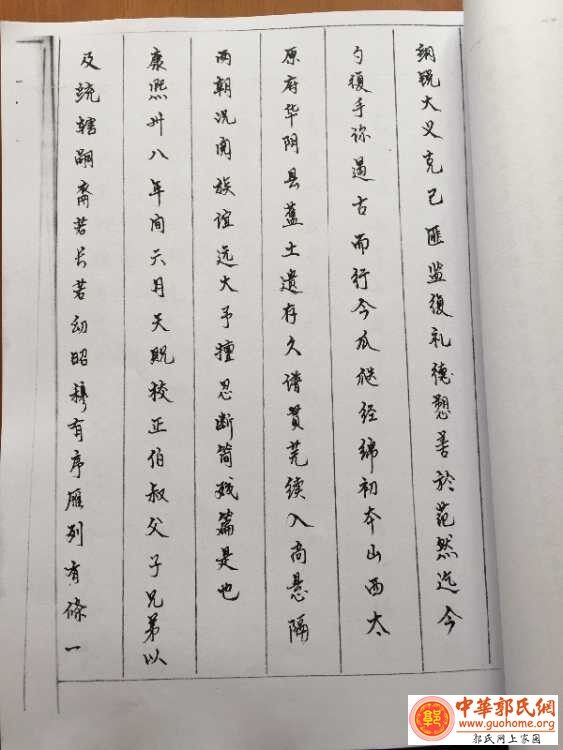 锐大义克己匪监復礼德善於范然迄今
勺復手弥古而行今瓜瓞经绵初本山西太
原府华阴县土遗存久谱贯芜续入尚悬隔
两朝况阅族谊远大予擅忍断简残篇是也
康熙卅八年间六月天贶校正伯叔父子兄弟以
及统辖嗣裔若长若幼昭穆有序雁列有條一
中華郭氏網
www.guohome.org
郭氏网上家园